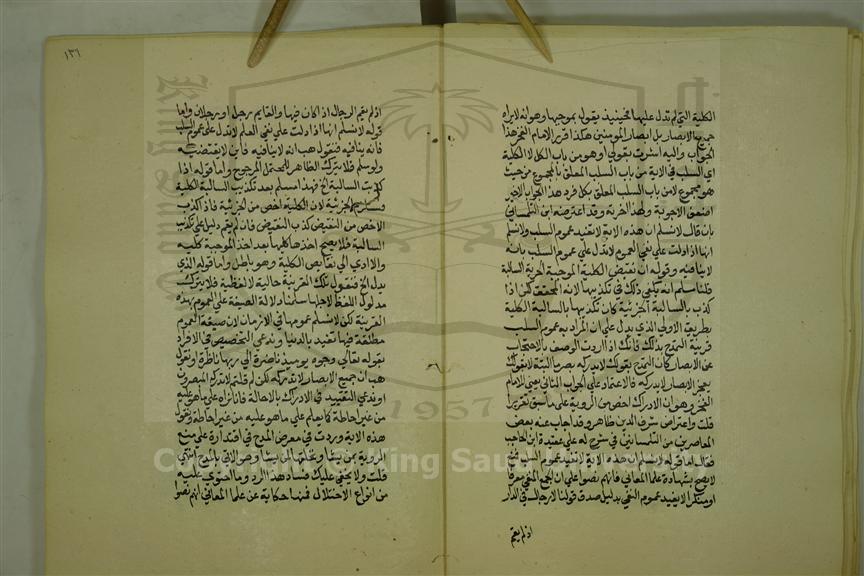 الكلية التي لم تدل عليها فحينيذ يقوله بموجبها وهو انه لا يراه
جميع الابصار بل ابصار المومنين هكذا قرر الامام الفخر هذا
الجواب واليه اشرت بقولي او هو من باب الكل لا الكلية
اي السلب في الاية من باب السلب المعلق بالمجموع من حيث
هو مجموع لا من باب السلب المعلق بكل فرد هذا الجواب الاخير
اضعف الاجوبة ولهذا اخرته وقد اعترضه ابن التلمساني
بان قال لا نسلم ان هذه الاية لا تفيد عموم السلب ولا نسلم
انها اذا دلت علي نفي العموم لا تدل علي عموم السلب بانه
لا ينافيه وقوله ان نقيض الكلية الموجبة الجزية السالبة
قلنا نسلم انه يكفي ذلك في تكذيبها لانه المحقق لكن اذا
كذب بالسالبة الجزئية كان تكذيبها بالسالبة الكلية
بطريق الاولي الذي يدل علي ان المراد به عموم السلب
قرينة التمدح بذلك فانك اذا اردت الوصف بالاحتجاب
عن الابصار كان التمدح بقولك لا يدركه بصر ما البتة لا بقولك
بعض الابصار لا يدركه فالاعتماد علي الجواب الثاني يعني للامام
الفخر وهو ان الادراك اخص من الروية علي ما سبق تقريره
قلت واعتراض شرف الدين ظاهر وقد اجاب عنه بعض
المعاصرين من التلمسانيين في شرح له علي عقيدة ابن الحاجب
فقال ما قوله لا نسلم ان هذه الاية لا تفيد عموم السلب فمنع
لا يصح بشهادة علما المعاني فانهم نصوا علي ان الجمع المنفي معرفا
او منكرا لا يفيد عموم النفي بدليل صدق قولنا لا رجال في الدار
اذ لم يقم
١٣٦
اذ لم يقم الرجال اذا كان فيها والقايم رجل او رجلان واما
قوله لا نسلم انها اذا دلت علي نفي العام لا تدل علي عموم السلب
فانه ينافيه فنقول هب انه لا ينافيه فاين لا يقتضيه
ولو سلم فلا يترك الظاهر للمحتمل المرجوح واما قوله اذا
كذبت السالبة الخ فهذا مسلم بعد تكذيب السالبة الكلية
الجزئية لان الكلية اخص من الجزئية فاذا كذب
الاخص من النقيض كذب النقيض فان لم يقم دليل علي تكذب
السالبة فلا يصح اخذها كلها بعد اخذ الموجبة كلية
والا ادي الي نقايص الكلية وهو باطل واما قوله الذي
يدل الخ فنقول تلك القرينة حالية لا لفظية فلا يترك
مدلول اللفظ لاجلها سلمنا دلالة الصيغة علي العموم بهذه
القرينة لكن لا نسلم عمومها في الازمان لان صيغة العموم
مطلقة فيها تقيد بالدنيا وندعي التخصيص في الافراد
بقوله تعالي وجوه يوميذ ناضرة الي ربها ناظرة ونقول
هب ان جميع الابصار لا تدركه لكن لم قلتم لا يدركه المبصرون
او ندعي التقييد في الادراك بالاحالة فانا نراه علي ما هو عليه
من غير احاطة كما يعلم علي ما هو عليه من غير احاطة ونقول
هذه الاية وردت في معرض المدح في اقتداره علي منع
الروية بمن يشا ويخلقها لمن يشا وهو الايق بالمدح انتهي
قلت ولا يخفي عليك فساد هذا الرد وما احتوي عليه
من انواع الاختلال فمنها حكاية عن علما المعاني انهم نصوا